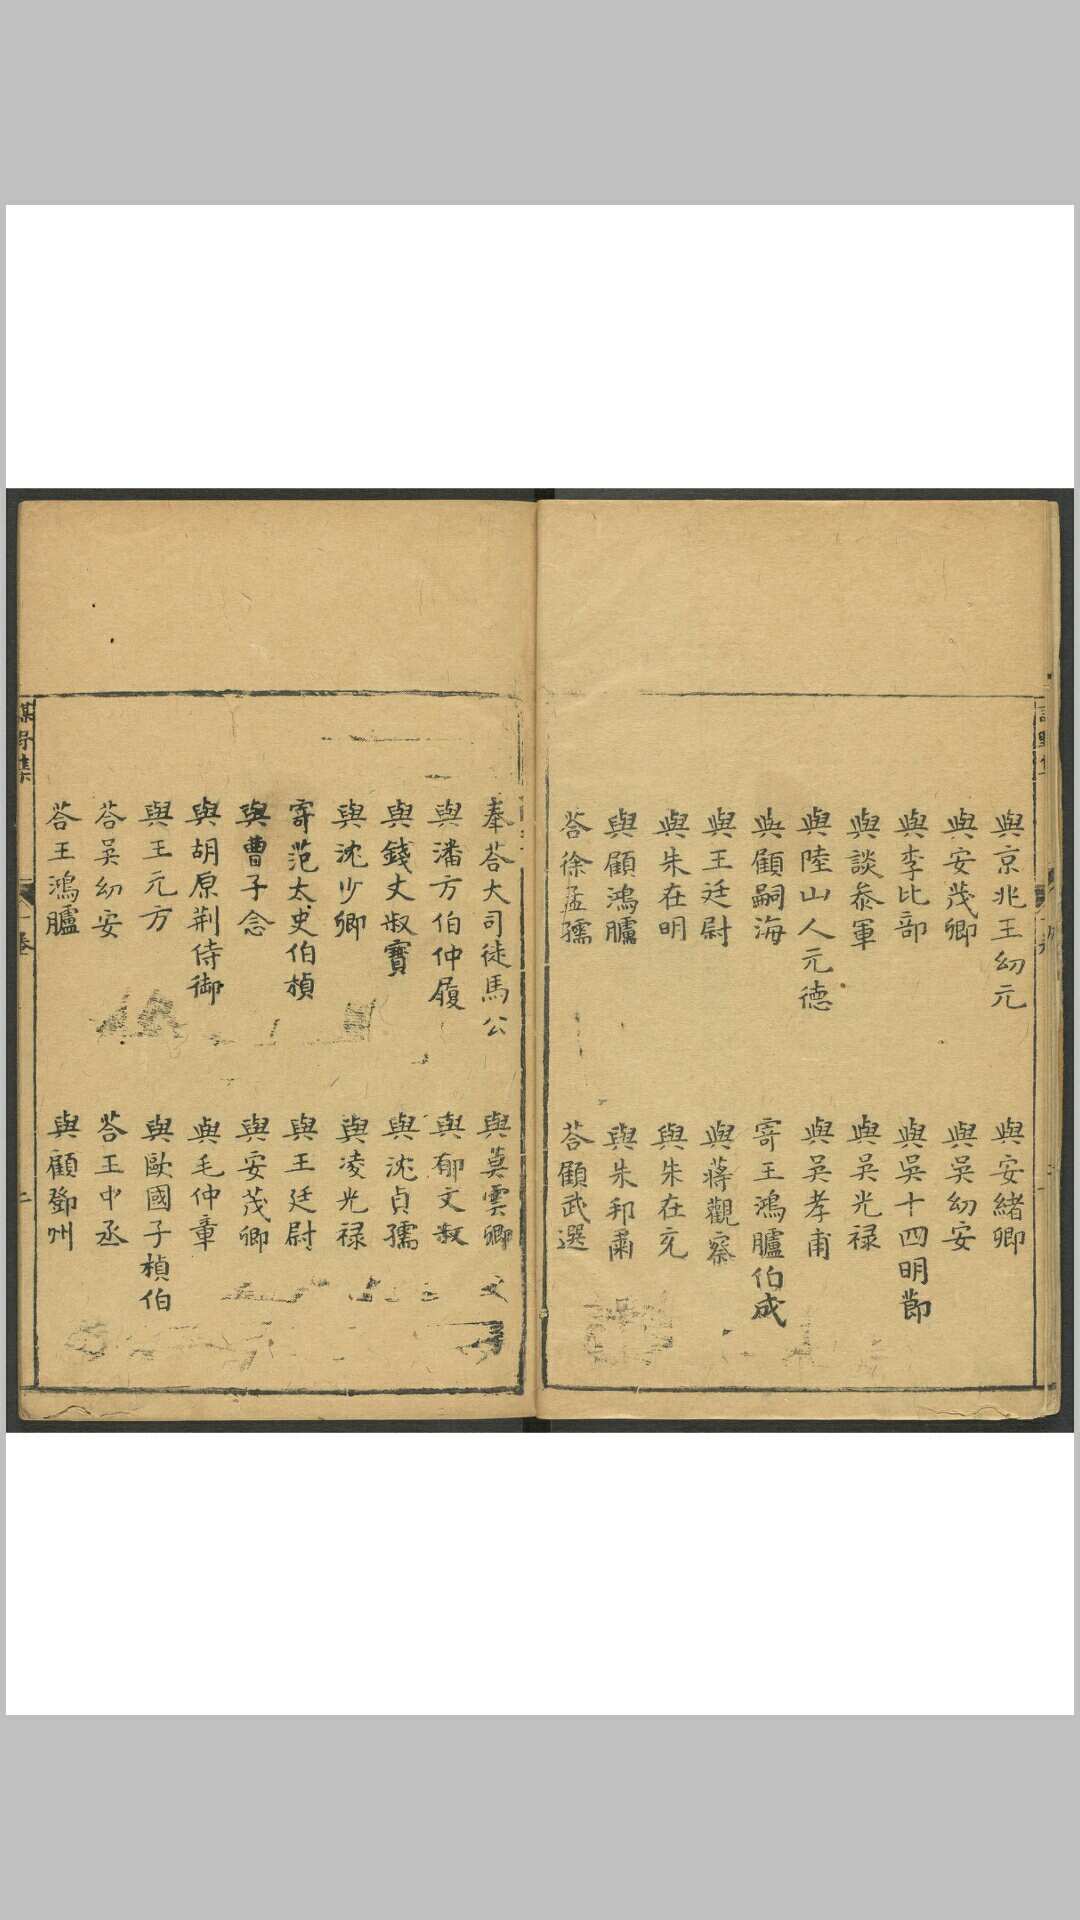 與京兆王幼元
與安緒卿
與安茂卿
與吳幼安
與李比部
與吳十四明節
與談叅軍
與吳光祿
與陸山人元德
與吳孝甫
與顧嗣海
寄王鴻臚伯成
與王廷尉
與蔣觀察
與朱在明
與朱在充
與顧鴻臚
與朱邦肅
荅徐孟孺
荅顧武選
奉荅大司徒馬公
與莫雲卿
與潘方伯仲履
與郁文叔
與錢丈叔寶
與沈貞孺
與沈少卿
與凌光祿
寄范太史伯楨
與王廷尉
與曹子念
與安茂卿
與胡原荆侍御
與毛仲章
與王元方
與歐國子楨伯
荅吳幼安
荅王中丞
荅王鴻臚
與顧鄧州